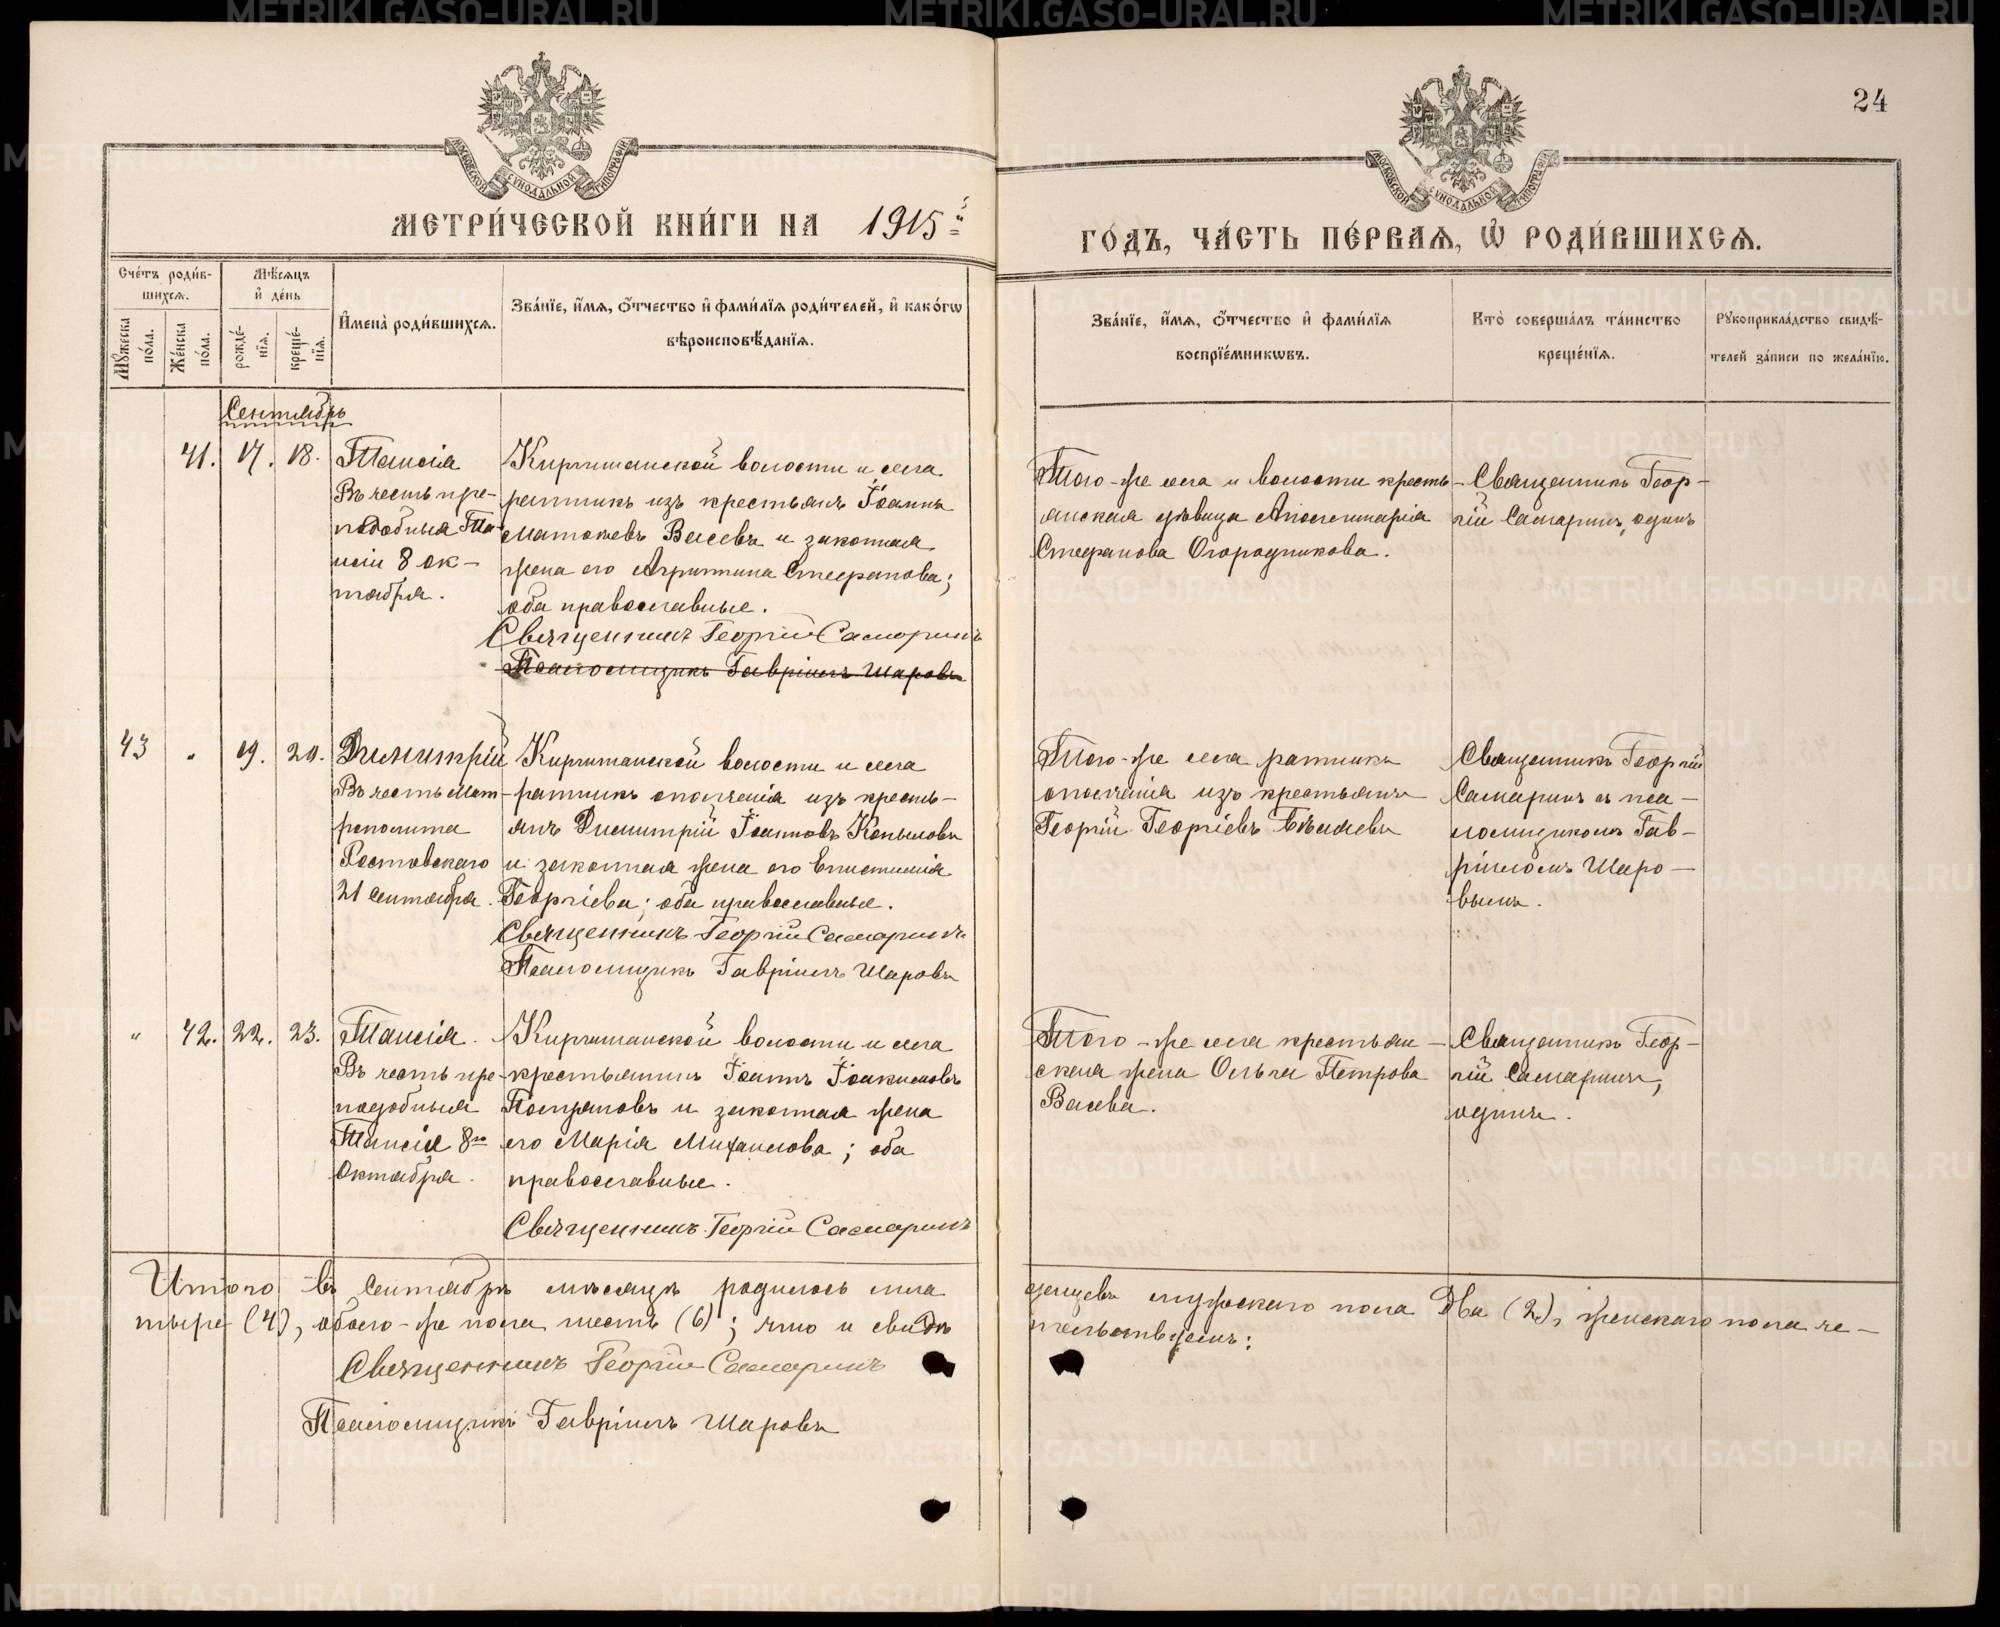 24
МОСКОВСКОЙ СѴНОДАЛЬНОЙ ТИПОГРАФІИ
МОСКОВСКОЙ СѴНОДАЛЬНОЙ ТИПОГРАФІИ
МЕТРИ́ЧЕСКОЙ КНИ́ГИ НА 1915й
ГО́ДЪ, ЧА́СТЬ ПЕ́РВАѦ, Ѽ РОДИ́ВШИХСѦ.
Сче́тъ роди́в-
шихсѧ.
Мꙋ́жеска по́ла.
Же́нска по́ла.
Мѣ́сѧцъ
и҆ де́нь
рожде́-нїѧ.
креще́-нїѧ.
И҆мена̀ роди́вшихсѧ.
Зва́нїе, и҆́мѧ, ѻ҆́тчество и҆ фами́лїѧ роди́телей, и҆ како́гѡ
вѣроисповѣ́данїѧ.
Зва́нїе, и҆́мѧ, ѻ҆́тчество и҆ фами́лїѧ
воспрїе́мникѡвъ.
Кто̀ соверша́лъ та́инство
креще́нїѧ.
Рꙋкоприкла́дство свидѣ́-
телей за́писи по жела́нїю.
Сентябрь
41. 17. 18.
Таисія
Въ честь пре-
подобныя Та
исіи 8 ок-
тября.
Киргишанской волости и села
ратникъ изъ крестьянъ Іоаннъ
Матѳеевъ Васевъ и законная
жена его Агриппина Стефанова;
оба православные.
Священникъ Георгій Самаринъ
Псаломщикъ Гавріилъ Шаровъ
Того-же села и волости кресть-
янская дѣвица Аполлинарія
Стефанова Огородникова.
Священникъ Геор-
гій Самаринъ, одинъ
43 " 19. 20.
Димитрій
Въ честь Мит-
рополита
Ростовскаго
21 Сентября.
Киргишанской волости и села
ратникъ ополченія изъ кресть-
янъ Димитрій Іоанновъ Копыловъ
и законная жена его Епистимія
Георгіева; оба православные.
Священникъ Георгій Самаринъ
Псаломщикъ Гавріилъ Шаровъ
Того-же села ратникъ
ополченія изъ крестьянъ
Георгій Георгіевъ Бѣляевъ
Священникъ Георгій
Самаринъ съ пса-
ломщикомъ Гав-
ріиломъ Шаро-
вымъ.
" 42. 22. 23.
Таисія.
Въ честь пре-
подобныя
Таисіи 8го
Октября.
Киргишанской волости и села
крестьянинъ Іоаннъ Іоакимовъ
и законная жена
его Марія Михаилова; оба
православные.
Священникъ Георгій Самаринъ
Того-же села крестьян-
ская жена Ольга Петрова
Васева.
Священникъ Геор-
гій Самаринъ,
одинъ.
Итого въ Сентябрѣ мѣсяцѣ родилось мла
денцевъ мужескаго пола два (2), женскаго пола че-
тыре (4), обоего-же пола шесть (6); что и свидѣ
тельствуемъ:
Священникъ Георгій Самаринъ
Псаломщикъ Гавріилъ Шаровъ
METRIKI.GASO-URAL.RU